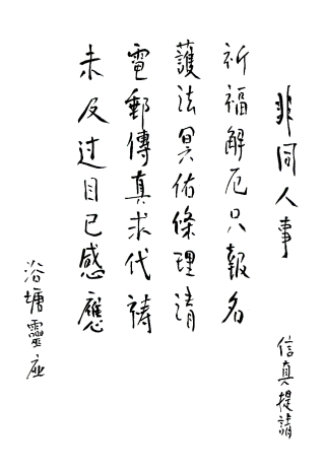 非同人事
信真提請
祈福解厄只報名
護法冥佑條理清
電郵傳真求代祷
未及过目已感應
浴塘靈座